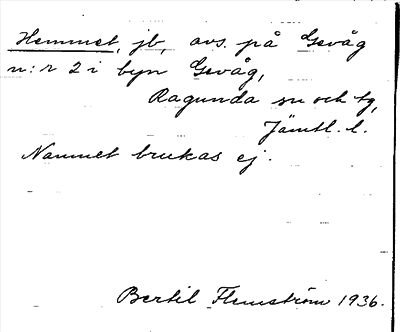 Hemmet, jb, avs. på Gevåg
n:r 2 i byn Gevåg,
Ragunda sn och tg,
Jämtl. l.
Namnet brukas ej.
Bertil Flemström 1936.